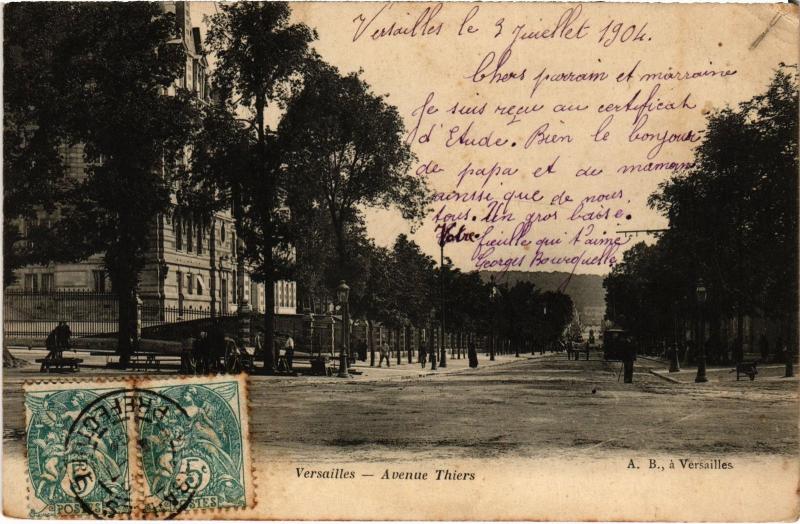 Versailles le 3 Juillet 1904.
Chers parrain et marraine
Je suis reçu au certificat
d'Etude. Bien le bonjour
de papa et de maman
ainssi que de nous
tous. Un gros baise.
Votre fieulle qui t'aime
Georges
Versailles — Avenue Thiers
A. B., à Versailles
PREFECTURE
5c
POSTES
POSTES